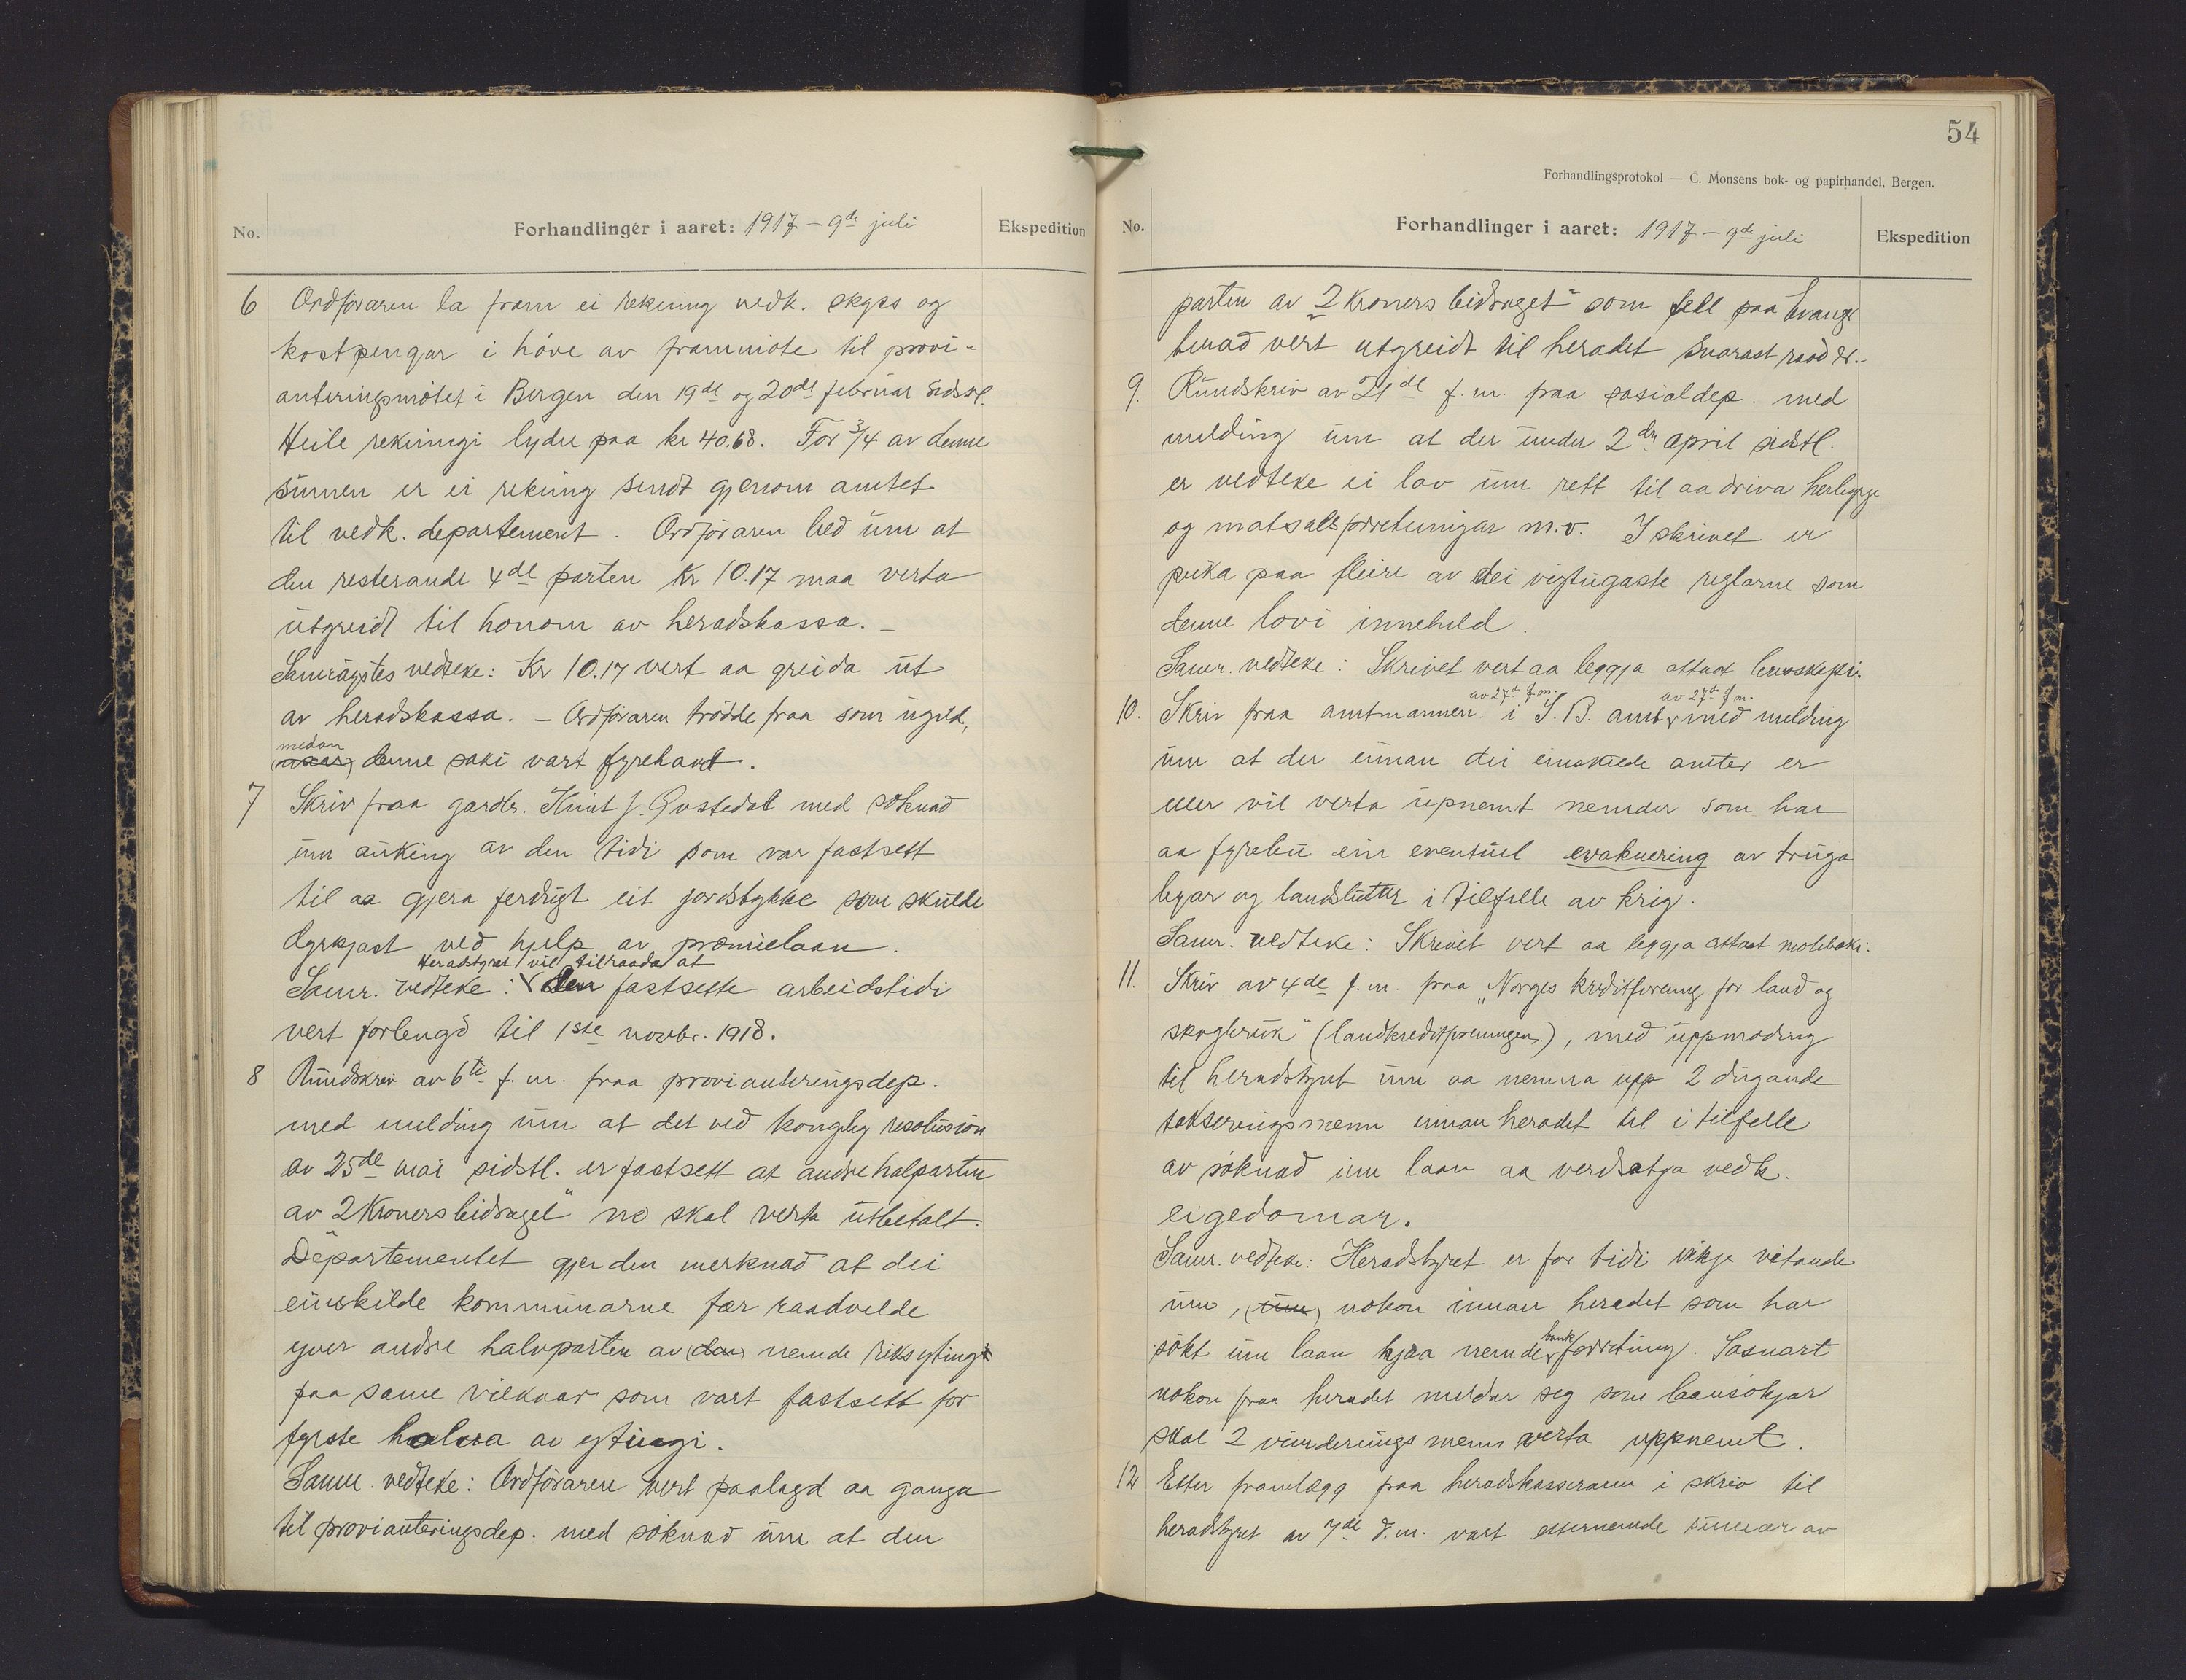 No.
Forhandlinger i aaret: 1917 – 9de juli
Ekspedition
6 Ordföraren la fram ei rekning vedk. skyss og
kostpengar i höve av frammöte til provi-
anteringsmötet i Bergen den 19de og 20de februar sidstl.
Heile rekningi lyder paa kr 40.68. For 3/4 av denne
summen er ei rekning sendt gjenom amtet
til vedk. departement. Ordföraren bed um at
den resterande 4de parten Kr 10.17 maa verta
utgreidt til honom av heradskassa. –
Samröystes vedteke: Kr 10.17 vert aa greida ut
av heradskassa. – Ordföraren trödde fraa som ugild,
medan
denne saki vart fyrehavt.
7 Skriv fraa gardbr. Knut J. Gustedal med söknad
um auking av den tidi som var fastsett
til aa gjera ferdigt eit jordstykke som skulde
dyrkjast ved hjelp av præmielaan.
Heradstyret vil tilraada at
Samr. vedteke: den fastsette arbeidstidi
vert forlengd til 1ste novbr. 1918.
8 Rundskriv av 6te f.m. fraa provianteringsdep.
med melding um at det ved kongeleg resolusion
av 25de mai sidstl. er fastsett at andre halparten
av "2 Kronersbidraget" no skal verta utbetalt.
Departementet gjer den merknad at dei
einskilde kommunarne fær raadvelde
yver andre halvparten av (den) nemde riksyting
paa same vilkaar som vart fastsett for
fyrste halva av ytingi.
Samr. vedteke: Ordföraren vert paalagd aa ganga
til provianteringsdep. med söknad um at den
54
Forhandlingsprotokol — C. Monsens bok- og papirhandel, Bergen.
No.
Forhandlinger i aaret: 1917 – 9de juli
Ekspedition
parten av "2 Kroners bidraget" som fell paa
vert utgreidt til heradet snarast raad er.–
9. Rundskriv av 21de f.m. fraa sosialdep. med
melding um at der under 2dn april sidstl.
er vedteke ei lov um rett til aa driva herbyrge
og matsalsforretningar m.v. I skrivet er
peika paa fleire av dei vigtugaste reglarne som
denne lovi inneheld.
Samr. vedteke: Skrivet vert aa leggja attaat brevskapi.
av 27de f.m. av 27de f.m.
10. Skriv fraa amtmannen i S. B. amt, med melding
um at der innan dei einskilde amter er
eller vil verta upnemt nemder som har
aa fyrebu ein eventuel evakuering av truga
byar og landsluter i tilfelle av krig.
Samr. vedteke: Skrivet vert aa leggja attaat möteboki.
11. Skriv av 4de f.m. fraa „Norges kreditforening for land og
skogbruk" (landkreditforeningen), med uppmoding
til heradstyret um aa nemna upp 2 dugande
takseringsmenn innan heradet til i tilfelle
av söknad um laan aa verdsetja vedk.
eigedomar.
Samr. vedteke: Heradstyret er for tidi ikkje vitande
um, (um) nokon innan heradet som har
bank
sökt um laan hjaa nemde forretning. Sosnart
nokon fraa heradet melder seg som laansökjar
skal 2 vurderingsmenn verta uppnemt.
12 Etter framlegg fraa heradskasseraren i skriv til
heradstyret av 7de d.m. vart etternemde summar av